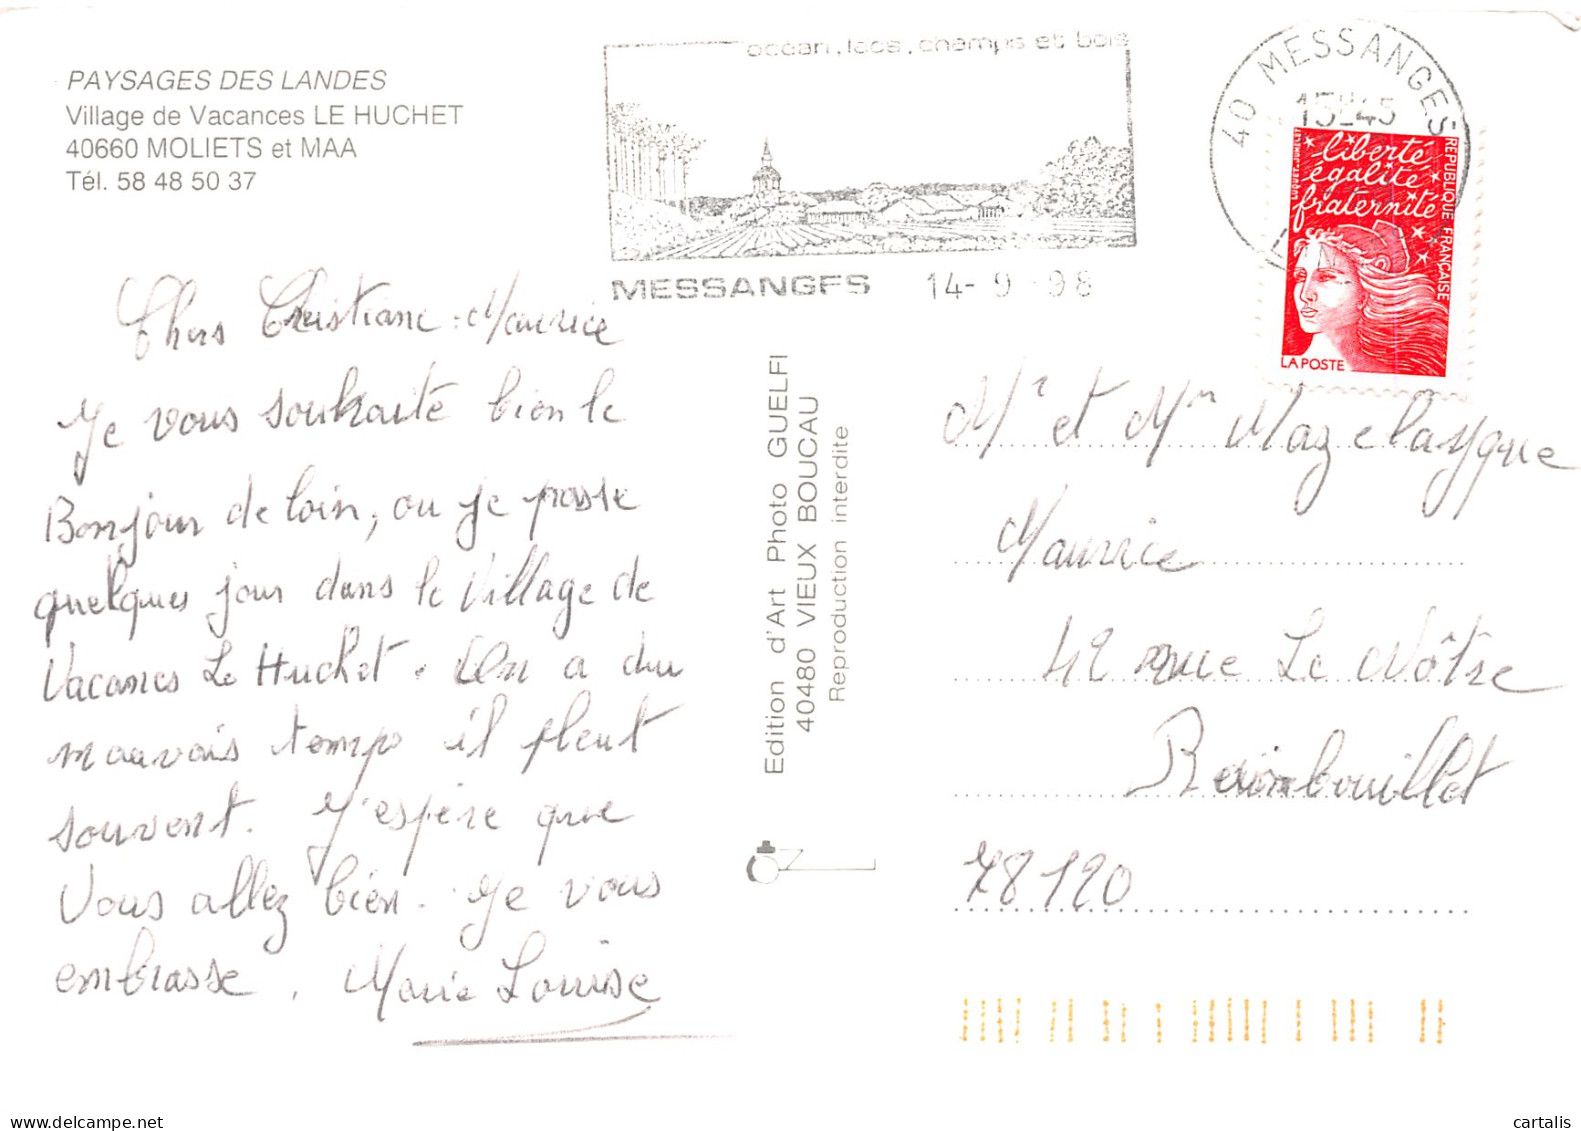 PAYSAGES DES LANDES
Village de Vacances LE HUCHET
40660 MOLIETS et MAA
Tél. 58 48 50 37
océan, lacs, champs et bois
MESSANGES 14-9-98
40 MESSANGES
15H45
liberté
égalité
fraternité
REPUBLIQUE FRANÇAISE
LA POSTE
Chers Christiane-Maurice
Je vous souhaite bien le
Bonjour de loin, ou je passe
quelques jour dans le Village de
Vacances Le Huchet. On a du
mauvais temps il pleut
souvent. J'espère que
Vous allez bien. Je vous
embrasse. Marie Louise
Edition d'Art Photo GUELFI
40480 VIEUX BOUCAU
Reproduction interdite
Mr et Mm Mazelaygue
Maurice
42 rue Le Nôtre
Rambouillet
78120
cartalis